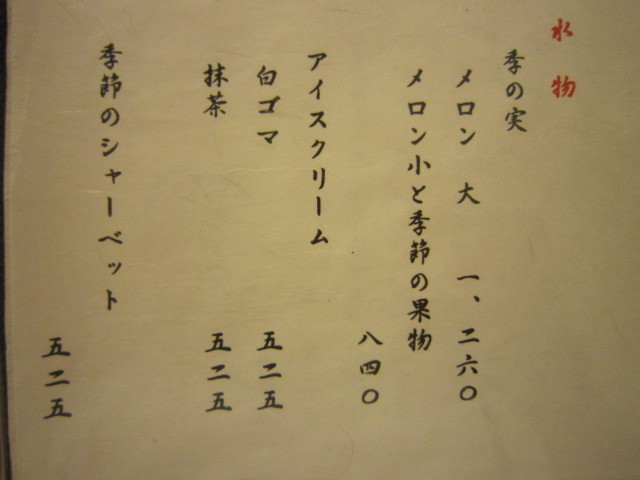 水物
季の実
メロン 大 一、二六〇
メロン小と季節の果物
八四〇
アイスクリーム
白ゴマ 五二五
抹茶 五二五
季節のシャーベット
五二五